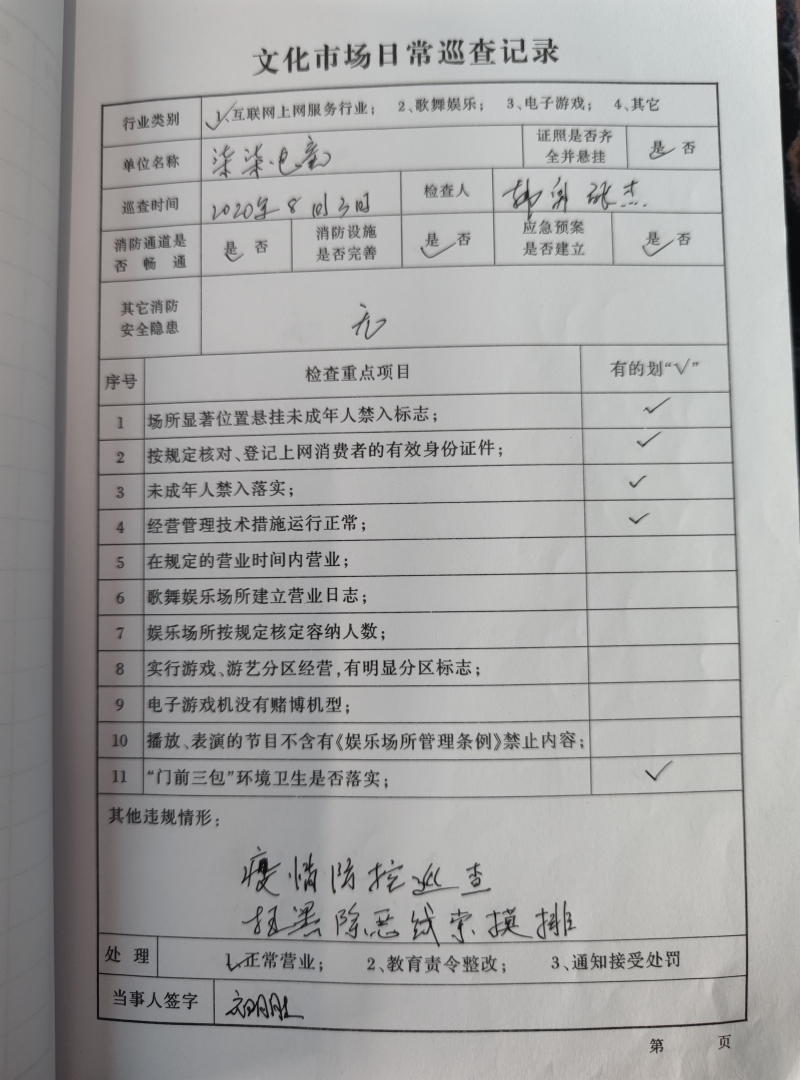 文化市场日常巡查记录
行业类别 ✓1、互联网上网服务行业； 2、歌舞娱乐； 3、电子游戏； 4、其它
单位名称 柒柒电竞 证照是否齐全并悬挂 是✓ 否
巡查时间 2020年8月3日 检查人 张杰
消防通道是否畅通 是✓ 否 消防设施是否完善 是✓ 否 应急预案是否建立 是✓ 否
其它消防安全隐患 无
序号 检查重点项目 有的划“√”
1 场所显著位置悬挂未成年人禁入标志； ✓
2 按规定核对、登记上网消费者的有效身份证件； ✓
3 未成年人禁入落实； ✓
4 经营管理技术措施运行正常； ✓
5 在规定的营业时间内营业；
6 歌舞娱乐场所建立营业日志；
7 娱乐场所按规定核定容纳人数；
8 实行游戏、游艺分区经营，有明显分区标志；
9 电子游戏机没有赌博机型；
10 播放、表演的节目不含有《娱乐场所管理条例》禁止内容；
11 “门前三包”环境卫生是否落实； ✓
其他违规情形：
疫情防控巡查
扫黑除恶线索摸排
处理 ✓1、正常营业； 2、教育责令整改； 3、通知接受处罚
当事人签字
第 页